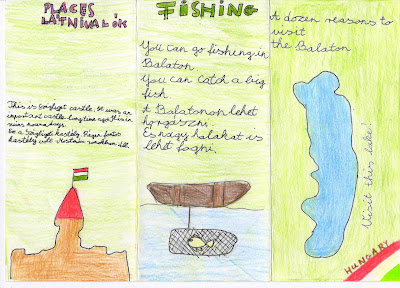 PLACES
LÁTNIVALÓK
This is Szigliget castle. It was an
important castle long time ago this in
ruins nowadays.
Ez a Szigligeti kastély. Régen fontos
kastély volt mostanra romokban áll.
FISHING
You can go fishing in
Balaton.
You can catch a big
fish
A Balatonon lehet
horgászni.
És nagy halakat is
lehet fogni.
A dozen reasons to
visit
the Balaton
Visit this lake!
HUNGARY